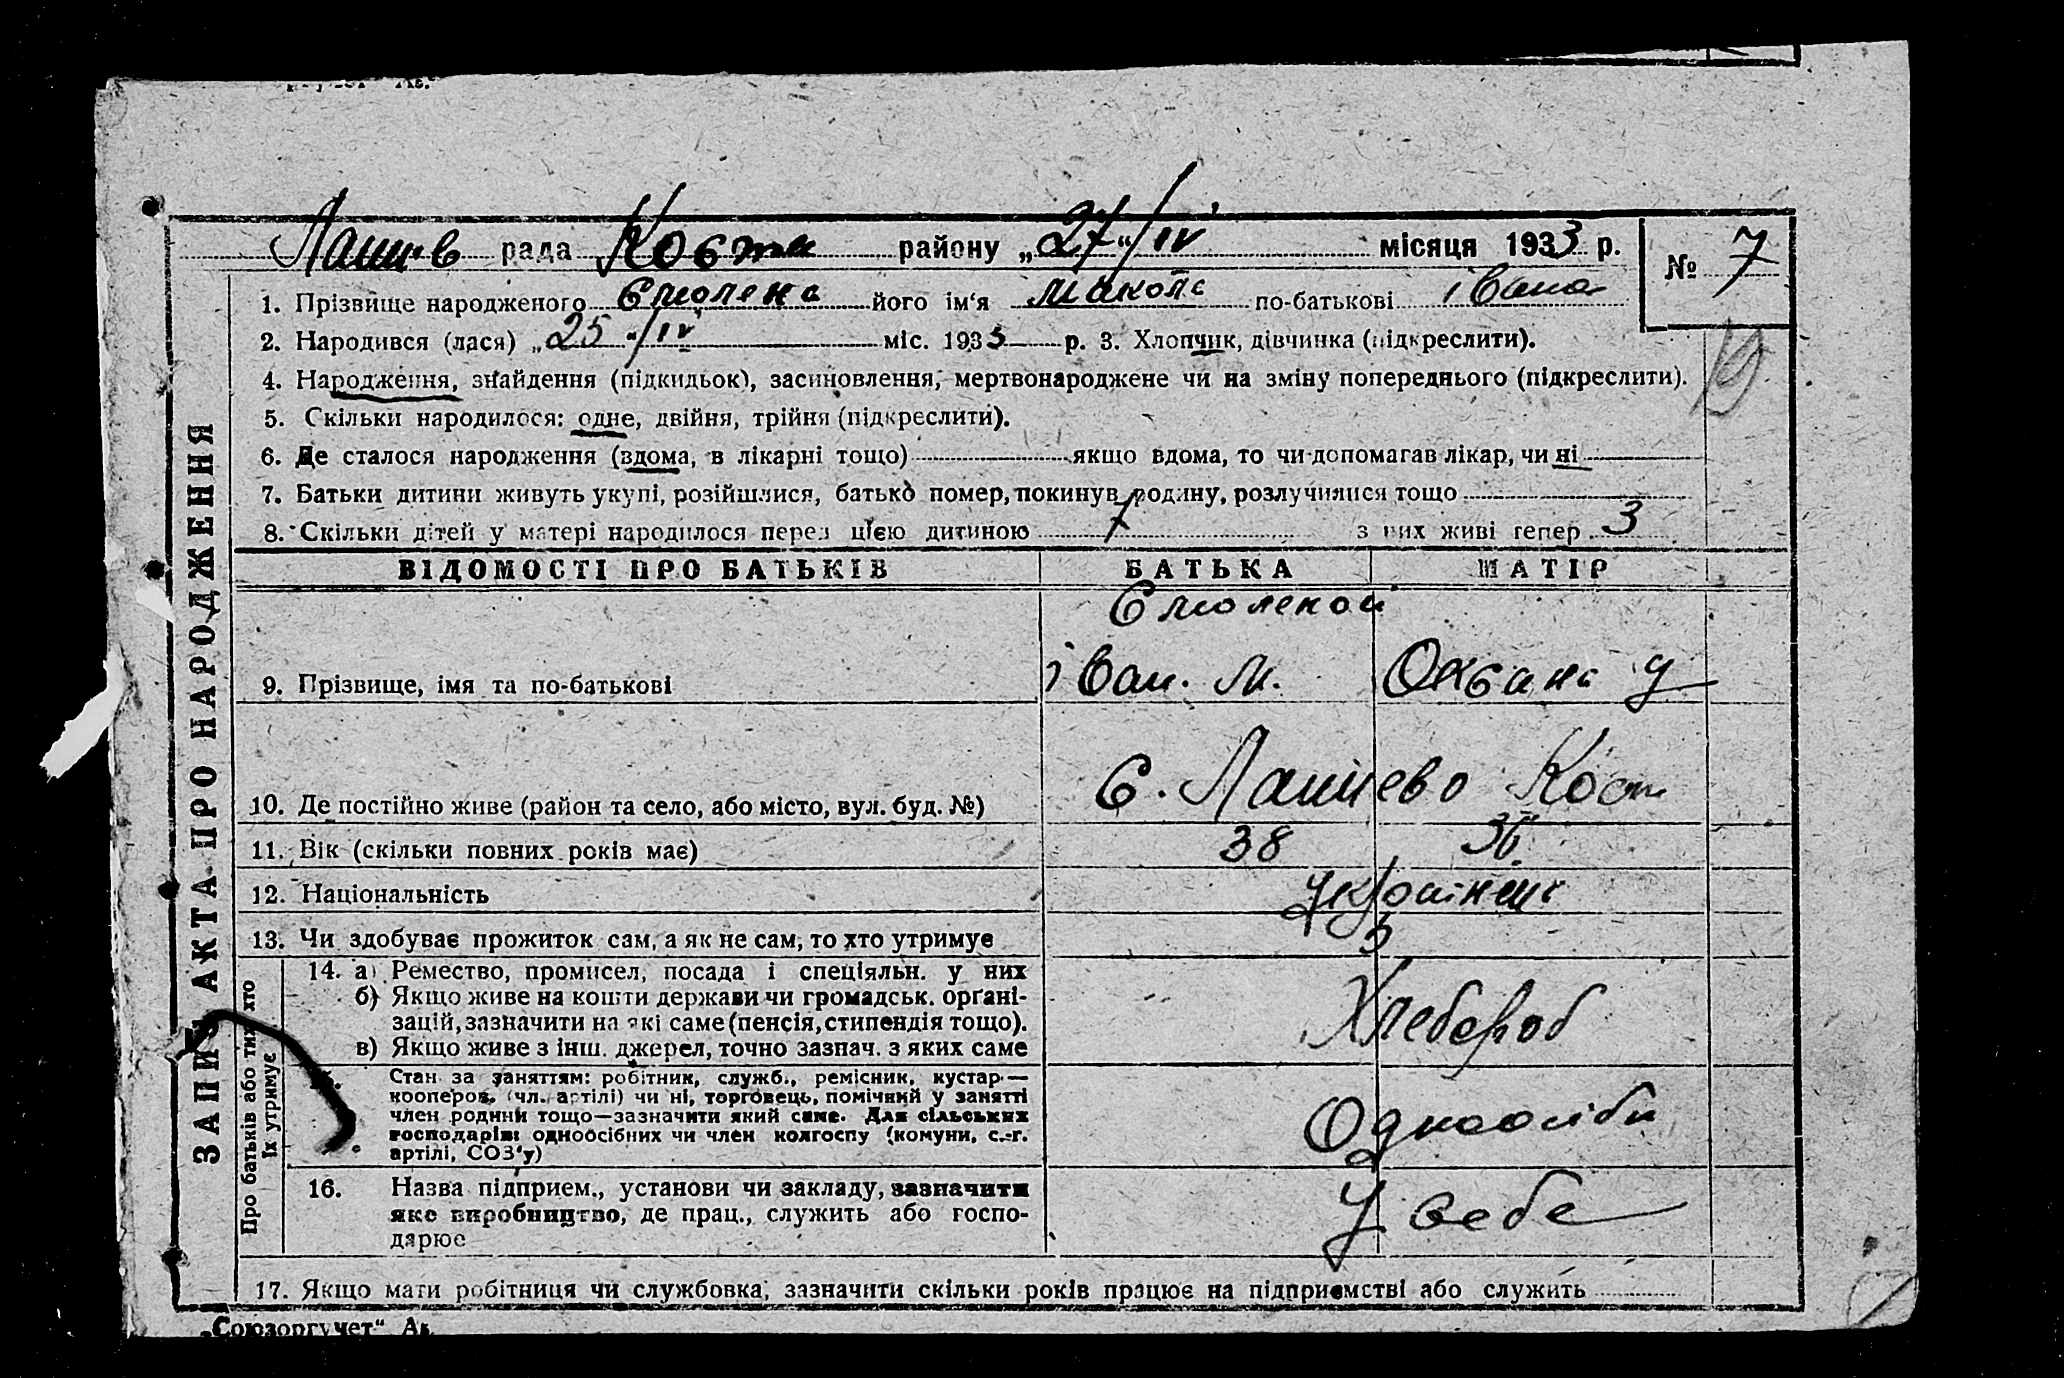 Лашів рада Костм району „27“/IV місяця 1933 р. № 7
1. Прізвище народженого Смолена його ім'я Микола по-батькові івана
2. Народився (лася) „25“/IV міс. 1933 р. 3. Хлопчик, дівчинка (підкреслити).
4. Народження, знайдення (підкидьок), засиновлення, мертвонароджене чи на зміну попереднього (підкреслити).
5. Скільки народилося: одне, двійня, трійня (підкреслити).
6. Де сталося народження (вдома, в лікарні тощо) якщо вдома, то чи допомагав лікар, чи ні
7. Батьки дитини живуть укупі, розійшлися, батько помер, покинув родину, розлучилися тощо
8. Скільки дітей у матері народилося перед цією дитиною 7 з них живі тепер 3
ВІДОМОСТІ ПРО БАТЬКІВ БАТЬКА МАТІР
Смоленой
9. Прізвище, імя та по-батькові Іван. М. Оксана У
10. Де постійно живе (район та село, або місто, вул. буд. №) С. Лашиево Кост
11. Вік (скільки повних років має) 38 36
12. Національність Украінець
13. Чи здобуває прожиток сам, а як не сам, то хто утримує
14. а) Ремество, промисел, посада і спеціяльн. у них
б) Якщо живе на кошти держави чи громадськ. орґані-
зацій, зазначити на які саме (пенсія, стипендія тощо).
в) Якщо живе з інш. джерел, точно зазнач. з яких саме
Хлебороб
Стан за заняттям: робітник, служб., ремісник, кустар—
кооперов. (чл. артілі) чи ні, торговець, помічний у занятті
член родини тощо—зазначити який саме. Для сільських
господарів: одноосібних чи член колгоспу (комуни, с.-г.
артілі, СОЗ'у)
Одноосіби
16. Назва підприєм., установи чи закладу, зазначити
яке виробництво, де прац., служить або госпо-
дарює
У себе
17. Якщо мати робітниця чи службовка, зазначити скільки років працює на підприємстві або служить
ЗАПИС АКТА ПРО НАРОДЖЕННЯ
Про батьків або тих, хто
їх утримує
19
„Союзоргучет“